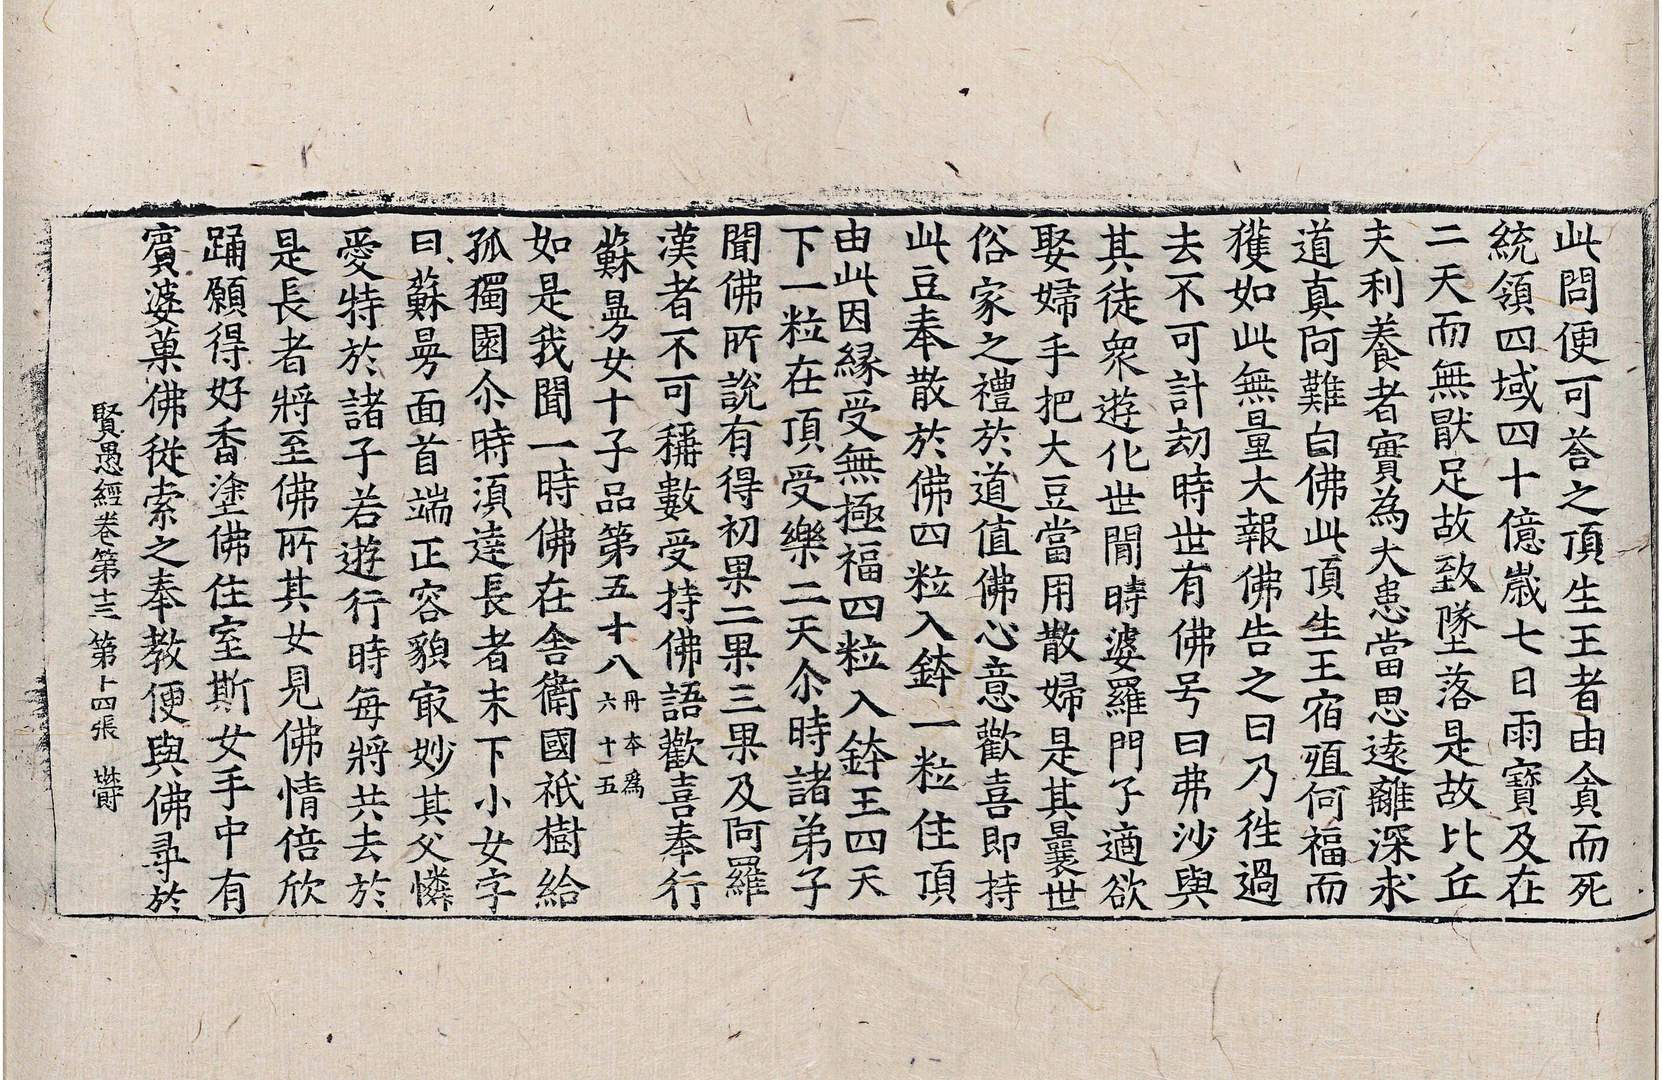 此問便可荅之頂生王者由貪而死
統領四域四十億歲七日雨寶及在
二天而無猒足故致墜落是故比丘
夫利養者實為大患當思遠離深求
道真阿難白佛此頂生王宿殖何福而
獲如此無量大報佛告之曰乃徃過
去不可計劫時世有佛号曰弗沙與
其徒衆遊化世間時婆羅門子適欲
娶婦手把大豆當用散婦是其曩世
俗家之禮於道值佛心意歡喜即持
此豆奉散於佛四粒入鉢一粒住頂
由此因緣受無極福四粒入鉢王四天
下一粒在頂受樂二天尒時諸弟子
聞佛所說有得初果二果三果及阿羅
漢者不可稱數受持佛語歡喜奉行
蘇曼女十子品第五十八 丹本為六十五
如是我聞一時佛在舍衛國祇樹給
孤獨園尒時湏達長者末下小女字
曰蘇曼面首端正容貌㝡妙其父憐
愛特於諸子若遊行時每將共去於
是長者將至佛所其女見佛情倍欣
踊願得好香塗佛住室斯女手中有
賓婆菓佛從索之奉教便與佛尋於
賢愚經卷第十三 第十四張 欝